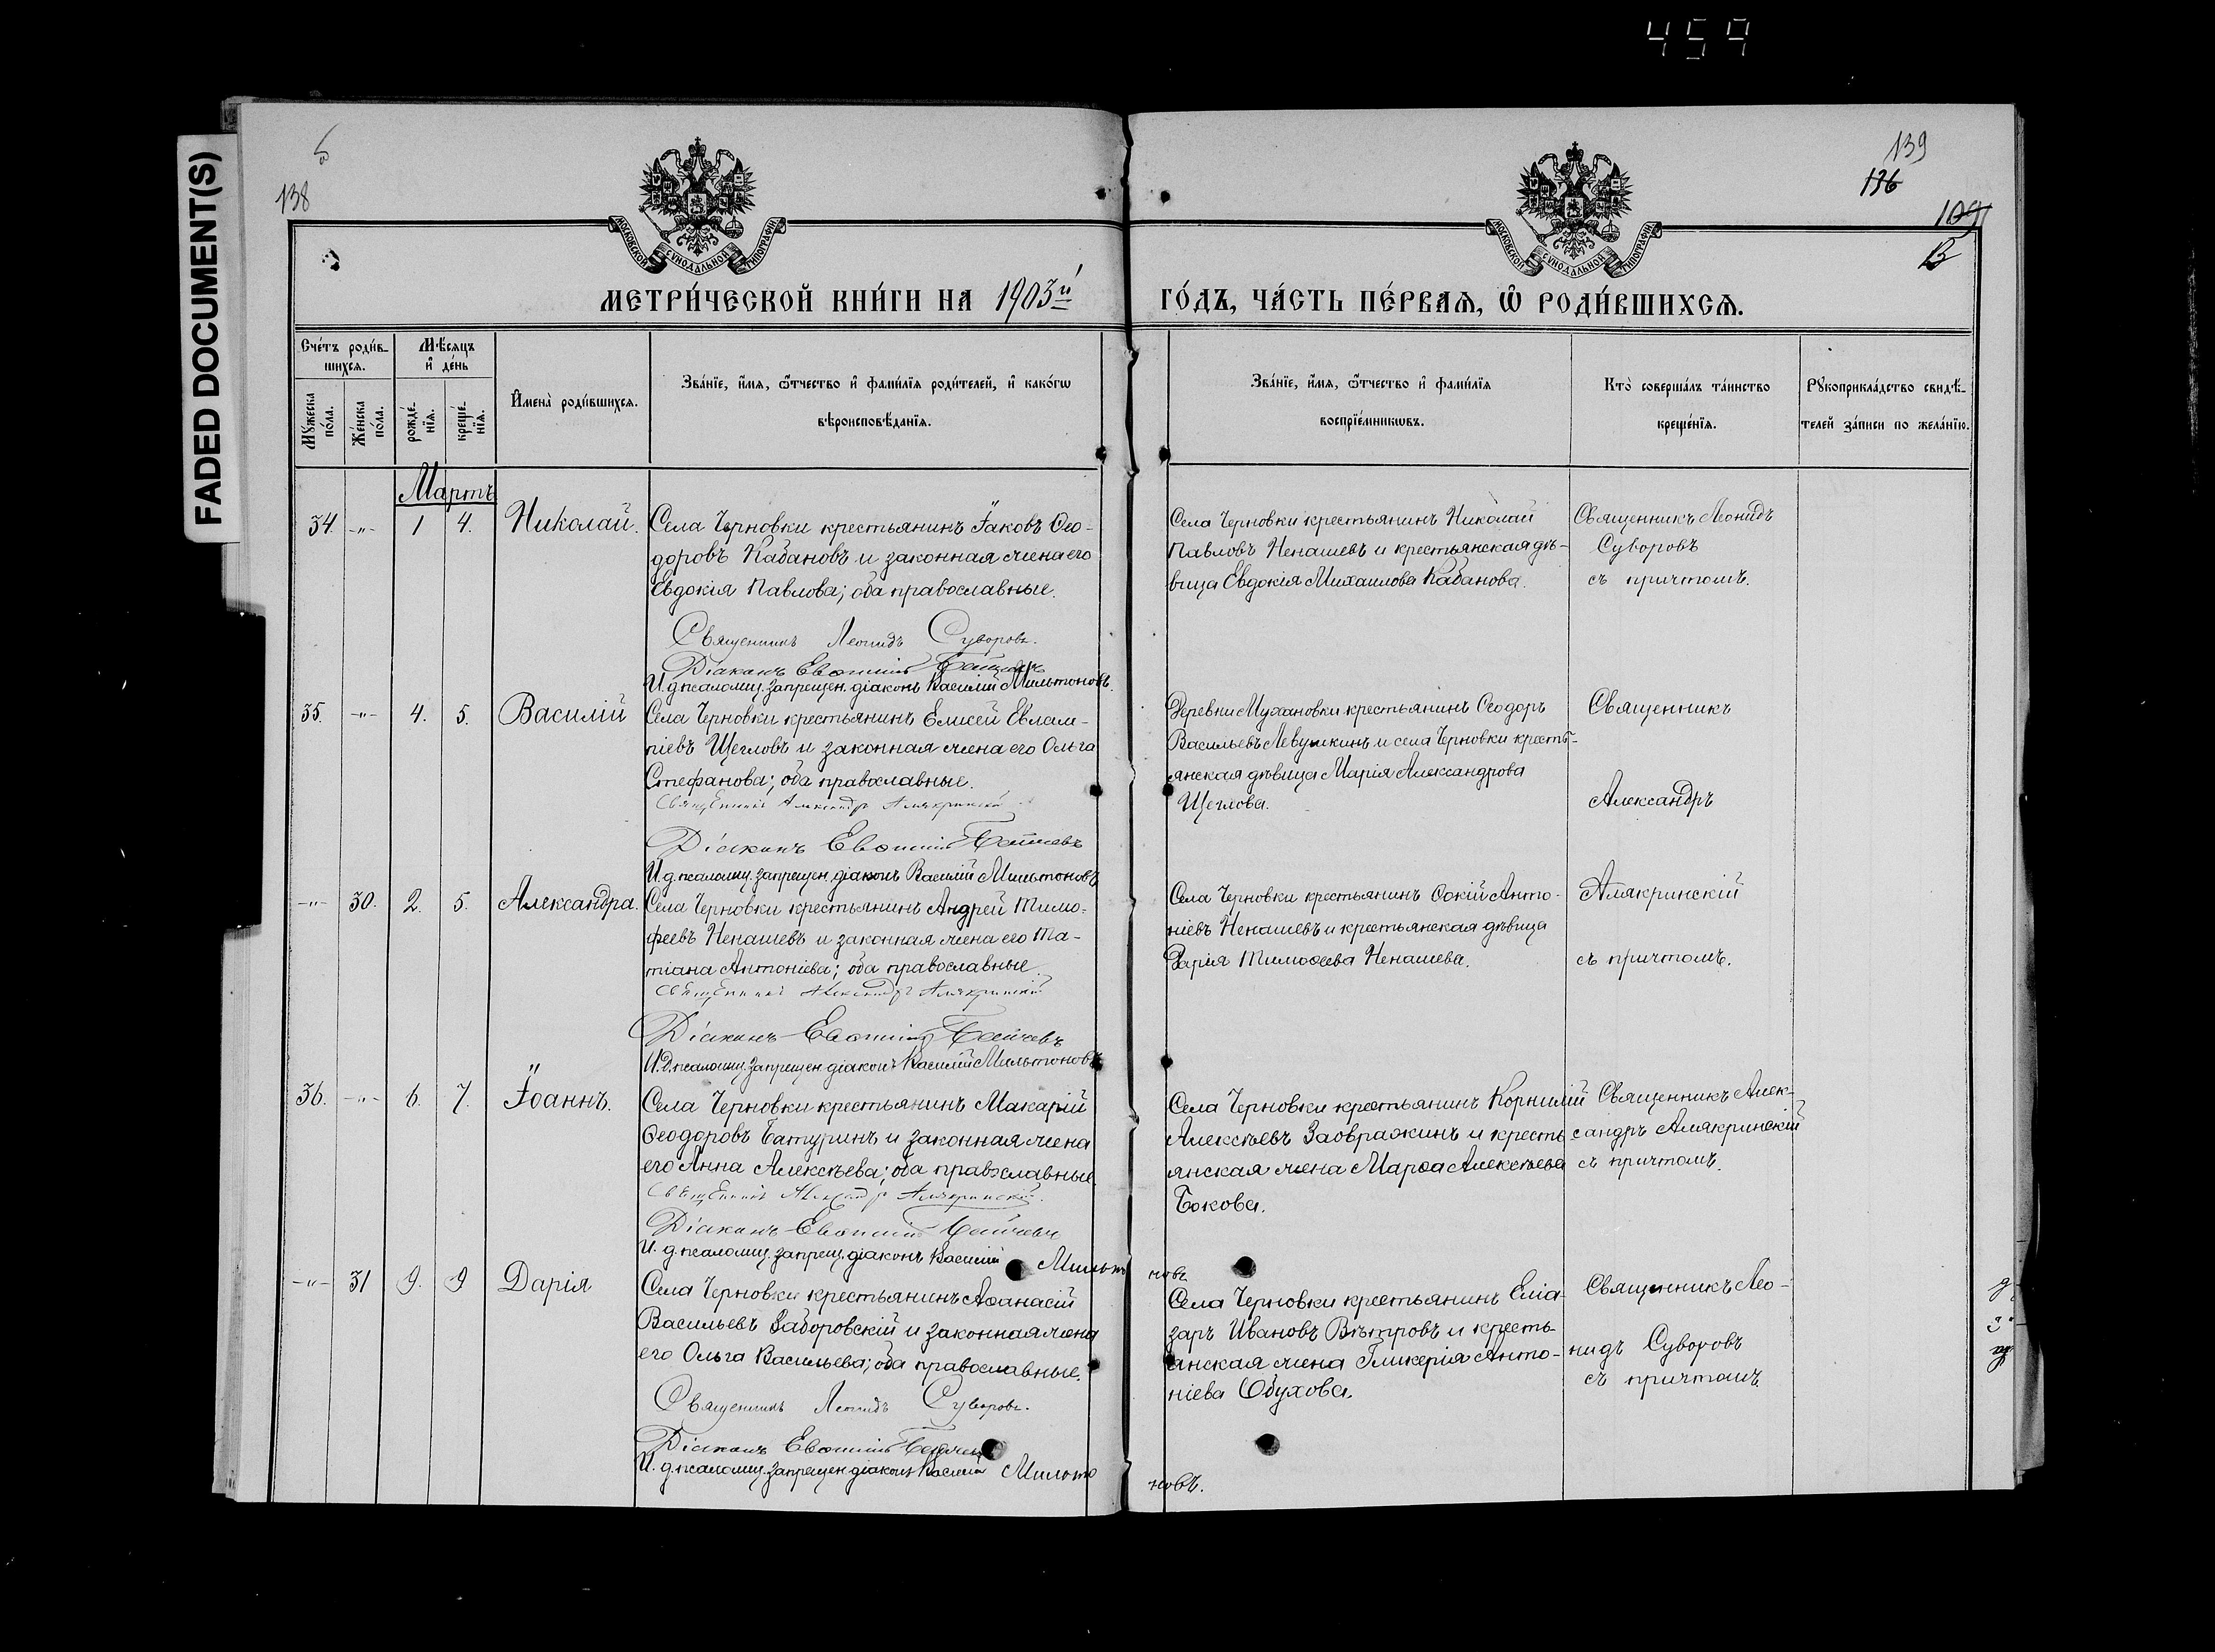 459
FADED DOCUMENT(S)
138
139
136
109
МОСКОВСКОЙ СѴНОДАЛЬНОЙ ТИПОГРАФІИ
МОСКОВСКОЙ СѴНОДАЛЬНОЙ ТИПОГРАФІИ
МЕТРИ́ЧЕСКОЙ КНИ́ГИ НА 1903й ГО́ДЪ, ЧА́СТЬ ПЕ́РВАЯ, Ѡ҆ РОДИ́ВШИХСѦ.
Сче́тъ роди́в-
шихсѧ.
Мꙋжеска
по́ла.
Же́нска
по́ла.
Мѣ́сѧцъ
и҆ де́нь
рожде́-
нїѧ.
креще́-
нїѧ.
И҆мена̀ роди́вшихсѧ.
Зва́нїе, и҆́мѧ, ѻ҆́тчество и҆ фами́лїѧ роди́телей, и҆ како́гѡ
вѣроисповѣ́данїѧ.
Зва́нїе, и҆́мѧ, ѻ҆́тчество и҆ фами́лїѧ
воспрїе́мникѡвъ.
Кто̀ соверша́лъ та́инство
креще́нїѧ.
Рꙋкоприкла́дство свидѣ́-
телей за́писи по жела́нїю.
Мартъ
34. -"- 1 4. Николай.
Села Черновки крестьянинъ Іаковъ Ѳео-
доровъ Кабановъ и законная жена его
Евдокія Павлова; оба православные.
Священникъ Леонидъ Суворовъ.
Діаконъ Евѳимій
И. д. псаломщ. запрещен. діаконъ Василій Мильтоновъ.
Села Черновки крестьянинъ Николай
Павловъ Ненашевъ и крестьянская дѣ-
вица Евдокія Михаилова Кабанова.
Священникъ Леонидъ
Суворовъ
съ причтомъ.
35. -"- 4. 5. Василій
Села Черновки крестьянинъ Елисей Евлам-
піевъ Щегловъ и законная жена его Ольга
Стефанова; оба православные.
Священникъ Александръ Алякринскій
Діаконъ Евѳимій
И. д. псаломщ. запрещен. діаконъ Василій Мильтоновъ
Деревни Мухановки крестьянинъ Ѳеодоръ
Васильевъ Левушкинъ и села Черновки кресть-
янская дѣвица Марія Александрова
Щеглова.
Священникъ
Александръ
-"- 30. 2. 5. Александра.
Села Черновки крестьянинъ Андрей Тимо-
феевъ Ненашевъ и законная жена его Та-
тіана Антоніева; оба православные.
Священникъ Александръ Алякринскій
Діаконъ Евѳимій
И. д. псаломщ. запрещен. діаконъ Василій Мильтоновъ
Села Черновки крестьянинъ Анто-
ніевъ Ненашевъ и крестьянская дѣвица
Тимоѳеева Ненашева.
Алякринскій
съ причтомъ.
36. -"- 6. 7. Іоаннъ.
Села Черновки крестьянинъ Макарій
Ѳеодоровъ Батуринъ и законная жена
его Анна Алексѣева; оба православные
Священникъ Александръ Алякринскій.
Діаконъ Евѳимій
И. д. псаломщ. запрещ. діаконъ Василій Мильтоновъ
Села Черновки крестьянинъ Корнилій
Алексѣевъ Заовражинъ и кресть-
янская жена Марѳа Алексѣева
Бокова.
Священникъ Алек-
сандръ Алякринскій
съ причтомъ.
-"- 31 9. 9 Дарія
Села Черновки крестьянинъ Аѳанасій
Васильевъ Заборовскій и законная жена
его Ольга Васильева; оба православные.
Священникъ Леонидъ Суворовъ.
Діаконъ Евѳимій
И. д. псаломщ. запрещен. діаконъ Василій Мильтоновъ.
Села Черновки крестьянинъ Еліа-
заръ Ивановъ Вѣтровъ и кресть-
янская жена Гликерія Анто-
ніева Обухова.
Священникъ Лео-
нидъ Суворовъ
съ причтомъ.